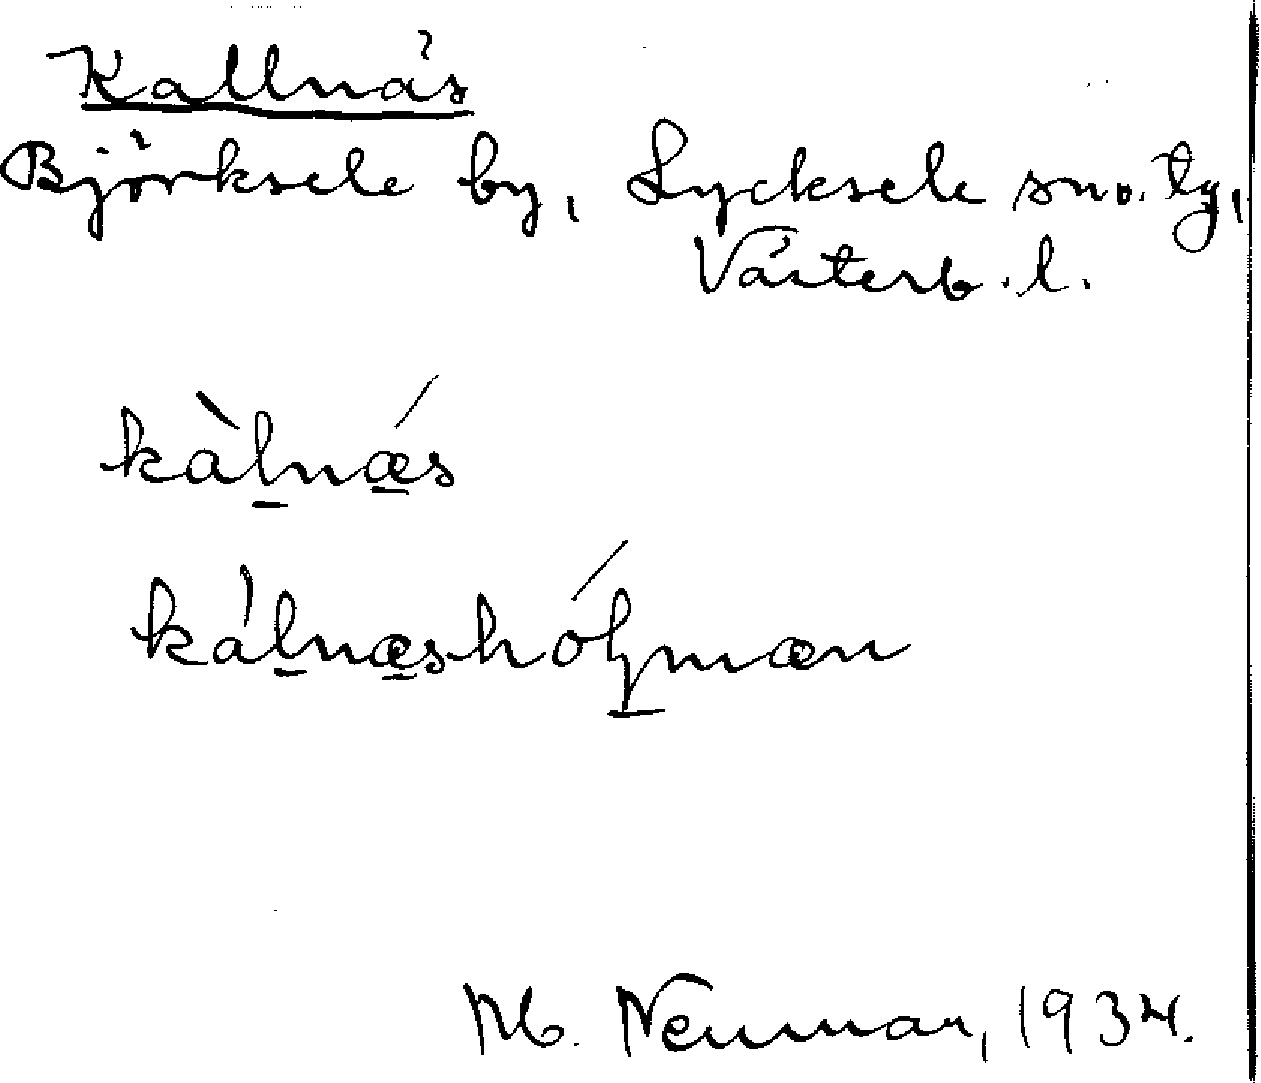 Kallnäs
Björksele by, Lycksele sn o. tg,
Västerb. l.
kàḻnǽ̱s
káḻnæ̱shóḻmæn
M. Neuman, 1934.